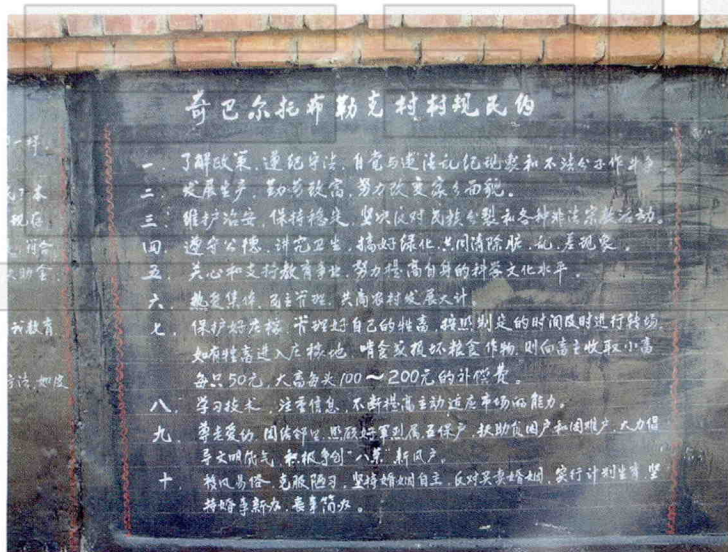 奇巴尔托布勒克村村规民约
一、了解政策、遵纪守法、自觉与违法乱纪现象和不法分子作斗争
二、发展生产、勤劳致富、努力改变家乡面貌。
三、维护治安、保持稳定、坚决反对民族分裂和各种非法宗教活动。
四、遵守公德、讲究卫生、搞好绿化、共同清除脏、乱、差现象。
五、关心和支持教育事业、努力提高自身的科学文化水平。
六、热爱集体、民主管理、共商农村发展大计。
七、保护好庄稼、管理好自己的牲畜、按照制定的时间及时进行转场、
如有牲畜进入庄稼地、啃食或损坏粮食作物、则向畜主收取小畜
每只50元、大畜每头100～200元的补偿费。
八、学习技术、注重信息、不断提高主动适应市场的能力。
九、尊老爱幼、团结邻里、照顾好军烈属五保户、扶助贫困户和困难户、大力倡
导文明风气、积极争创“八荣”新风户。
十、移风易俗、克服陋习、坚持婚姻自主、反对买卖婚姻、实行计划生育、坚
持婚事新办、丧事简办。
一样、
现存
助金、
教育
方法、如皮